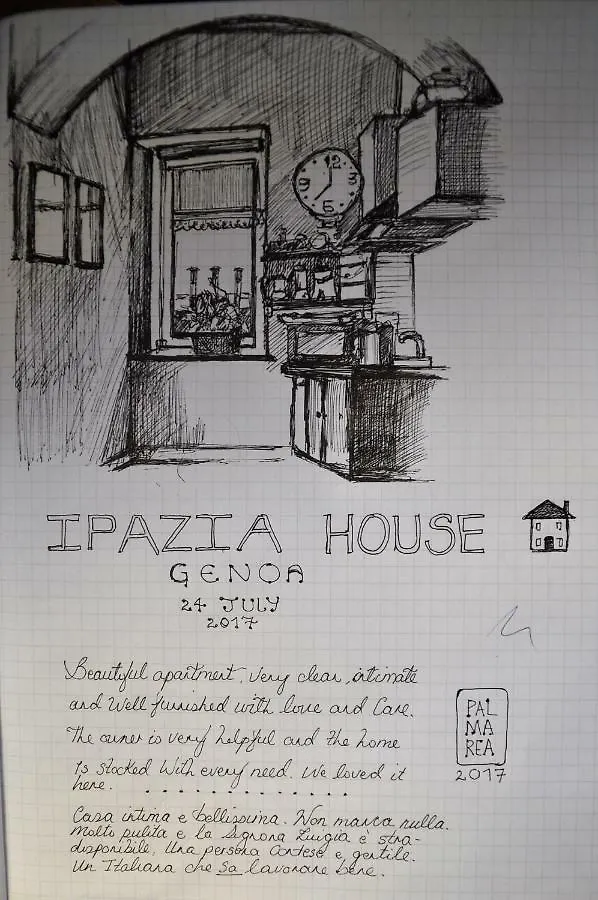 12
9
3
6
IPAZIA HOUSE
GENOA
24 JULY
2017
Beautiful apartment, very clean, intimate
and Well furnished with love and Care.
The owner is very helpful and the home
Is stocked With every need. We loved it
here. . . . . . . . . . . . . .
PAL
MA
REA
2017
Casa intima e bellissima. Non manca nulla.
Molto pulita e la Signora Luigia è stra-
disponibile. Una persona Cortese e gentile.
Un Italiana che sa lavorare bene.